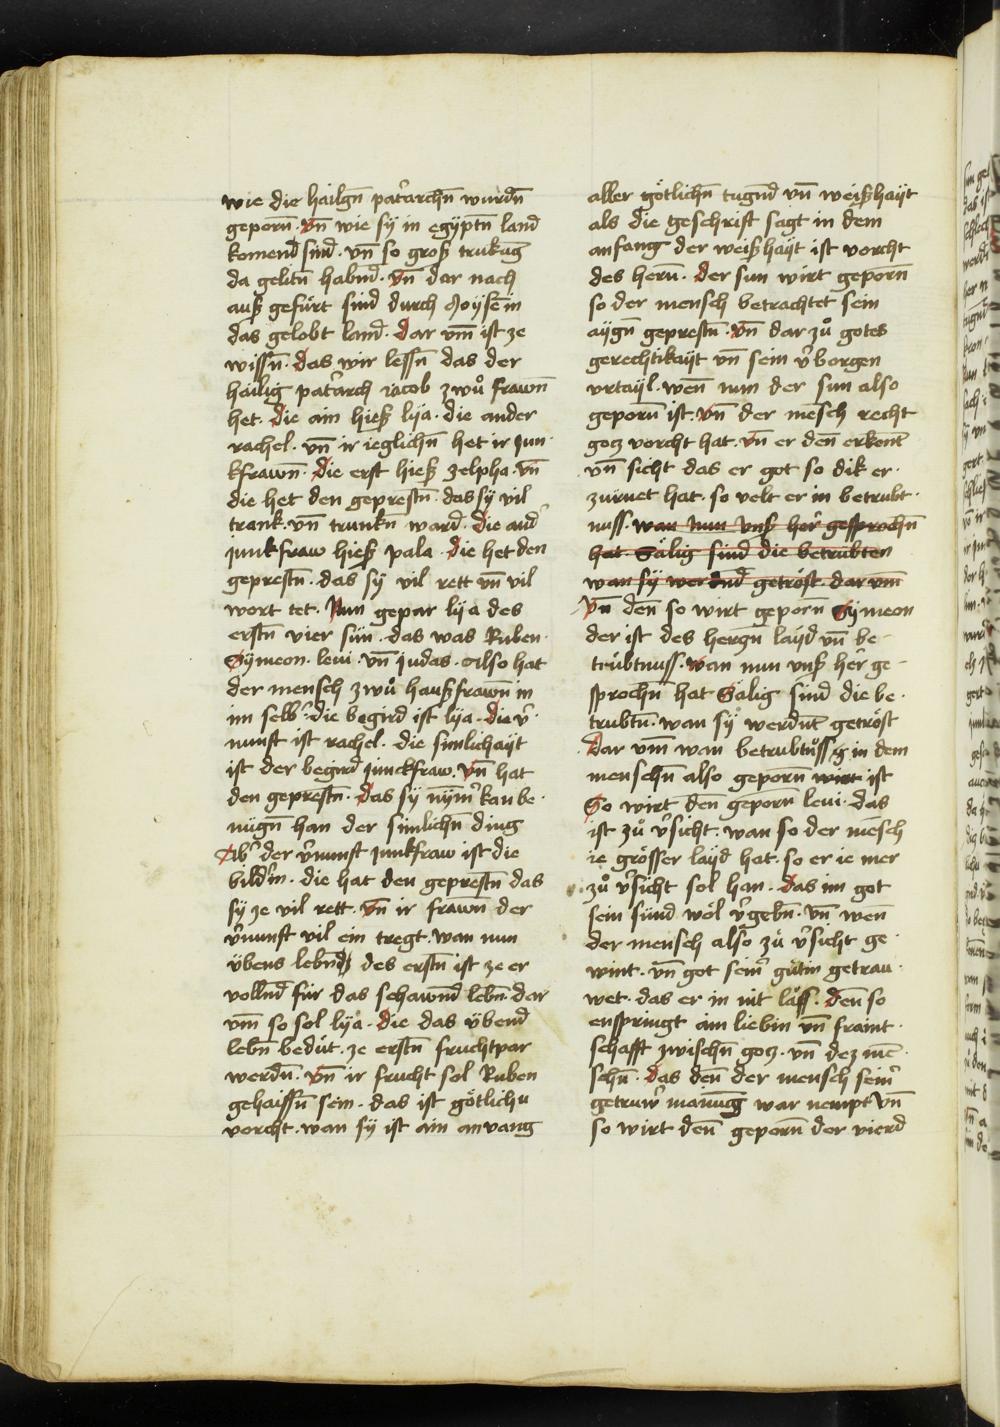 wie die hailgn̄ pat͛archn̄ wurdn̄
geporn̄. vn̄ wie sÿ in egÿptn̄ land
komend sind. vn̄ so groß trukūg
da gelitn̄ habnd. vn̄ dar nach
auß gefürt sind durch Moÿsē in
das gelobt land. Dar vm̄ ist ze
wissn̄. das wir lessn̄ das der
hailig pat͛arch iacob zwuͦ frawn̄
het. die ain hieß lÿa. die ander
rachel. vn̄ ir ieglichn̄ het ir Jun
kfrawn̄. die erst hieß zelpha. vn̄
die het den geprestn̄. das sÿ vil
trank. vn̄ trunkn̄ ward. die and͛
junkfraw hieß pala. die het den
geprestn̄. das sÿ vil rett vn̄ vil
wort tet. Nun gepar lÿa des
erstn̄ vier sün. das was Ruben.
Sÿmeon. leui. vn̄ judas. Also hat
der mensch zwuͦ haußfrawn̄ in
im selb͛. die begird ist lÿa. die v͛
nunft ist rachel. die sinlichaÿt
ist der begird junckfraw. vn̄ hat
den geprestn̄. das sÿ nÿm͛ kan be
nügn̄ han der sinlichn̄ ding
Ab͛ der v͛nunft junkfraw ist die
bild͛in. die hat den geprestn̄ das
sÿ ze vil rett. vn̄ ir frawn̄ der
v͛nunft vil ein tregt. wan nun
übens lebnds des erstn̄ ist ze er
vollnd für das schawnd lebn̄. dar
vm̄ so sol lÿa. die das übend
lebn̄ bedüt. ze erstn̄ fruchtpar
werdn̄. vn̄ ir frucht sol Ruben
gehaissn̄ sein. das ist götlichu
vorcht. wan sÿ ist ain anvang
aller götlichn̄ tugnd vn̄ weißhaÿt
als die geschrift sagt in dem
anfang der weißhaÿt ist vorcht
des hern̄. Der sun wirt geporn̄
so der mensch betrachtet sein
aÿgn̄ geprestn̄. vn̄ dar zuͦ gotes
gerechtikaÿt vn̄ sein v͛borgen
vrtaÿl. wen̄ nun der sun also
geporn̄ ist. vn̄ der mēsch recht
gocz vorcht hat. vn̄ er den̄ erkent
vn̄ sicht das er got so dik er
zurnet hat. so velt er in betrubt
nuss. wan nun vnß her͛ gesprochn̄
hat. Sälig sind die betrübten
wan sÿ werdnd getröst. dar vm̄
vn̄ den̄ so wirt geporn̄ Sÿmeon
der ist des herczn̄ laÿd vn̄ be
trübtnuss. wan nun vnß her͛ ge
sprochn̄ hat Sälig sind die be
trubtn̄. wan sÿ werdnt getröst
Dar vm̄ wan betrubtnuss in dem
menschn̄ also geporn̄ wirt ist
So wirt den̄ geporn̄ leui. das
ist zuͦ v͛sicht. wan so der mēsch
ie grösser laÿd hat. so er ie mer
zuͦ v͛sicht sol han. das im got
sein sünd wöl v͛gebn̄. vn̄ wen̄
der mensch also zuͦ v͛sicht ge
wint. vn̄ got sein͛ gütin getrau
wet. das er in nit läss. den̄ so
enspringt ain liebin vn̄ fraint
schafft zwischn̄ gocz. vn̄ dez mē
schn̄. das den̄ der mensch sein͛
getruw͛ mainūg war nempt vn̄
so wirt den̄ geporn̄ der vierd